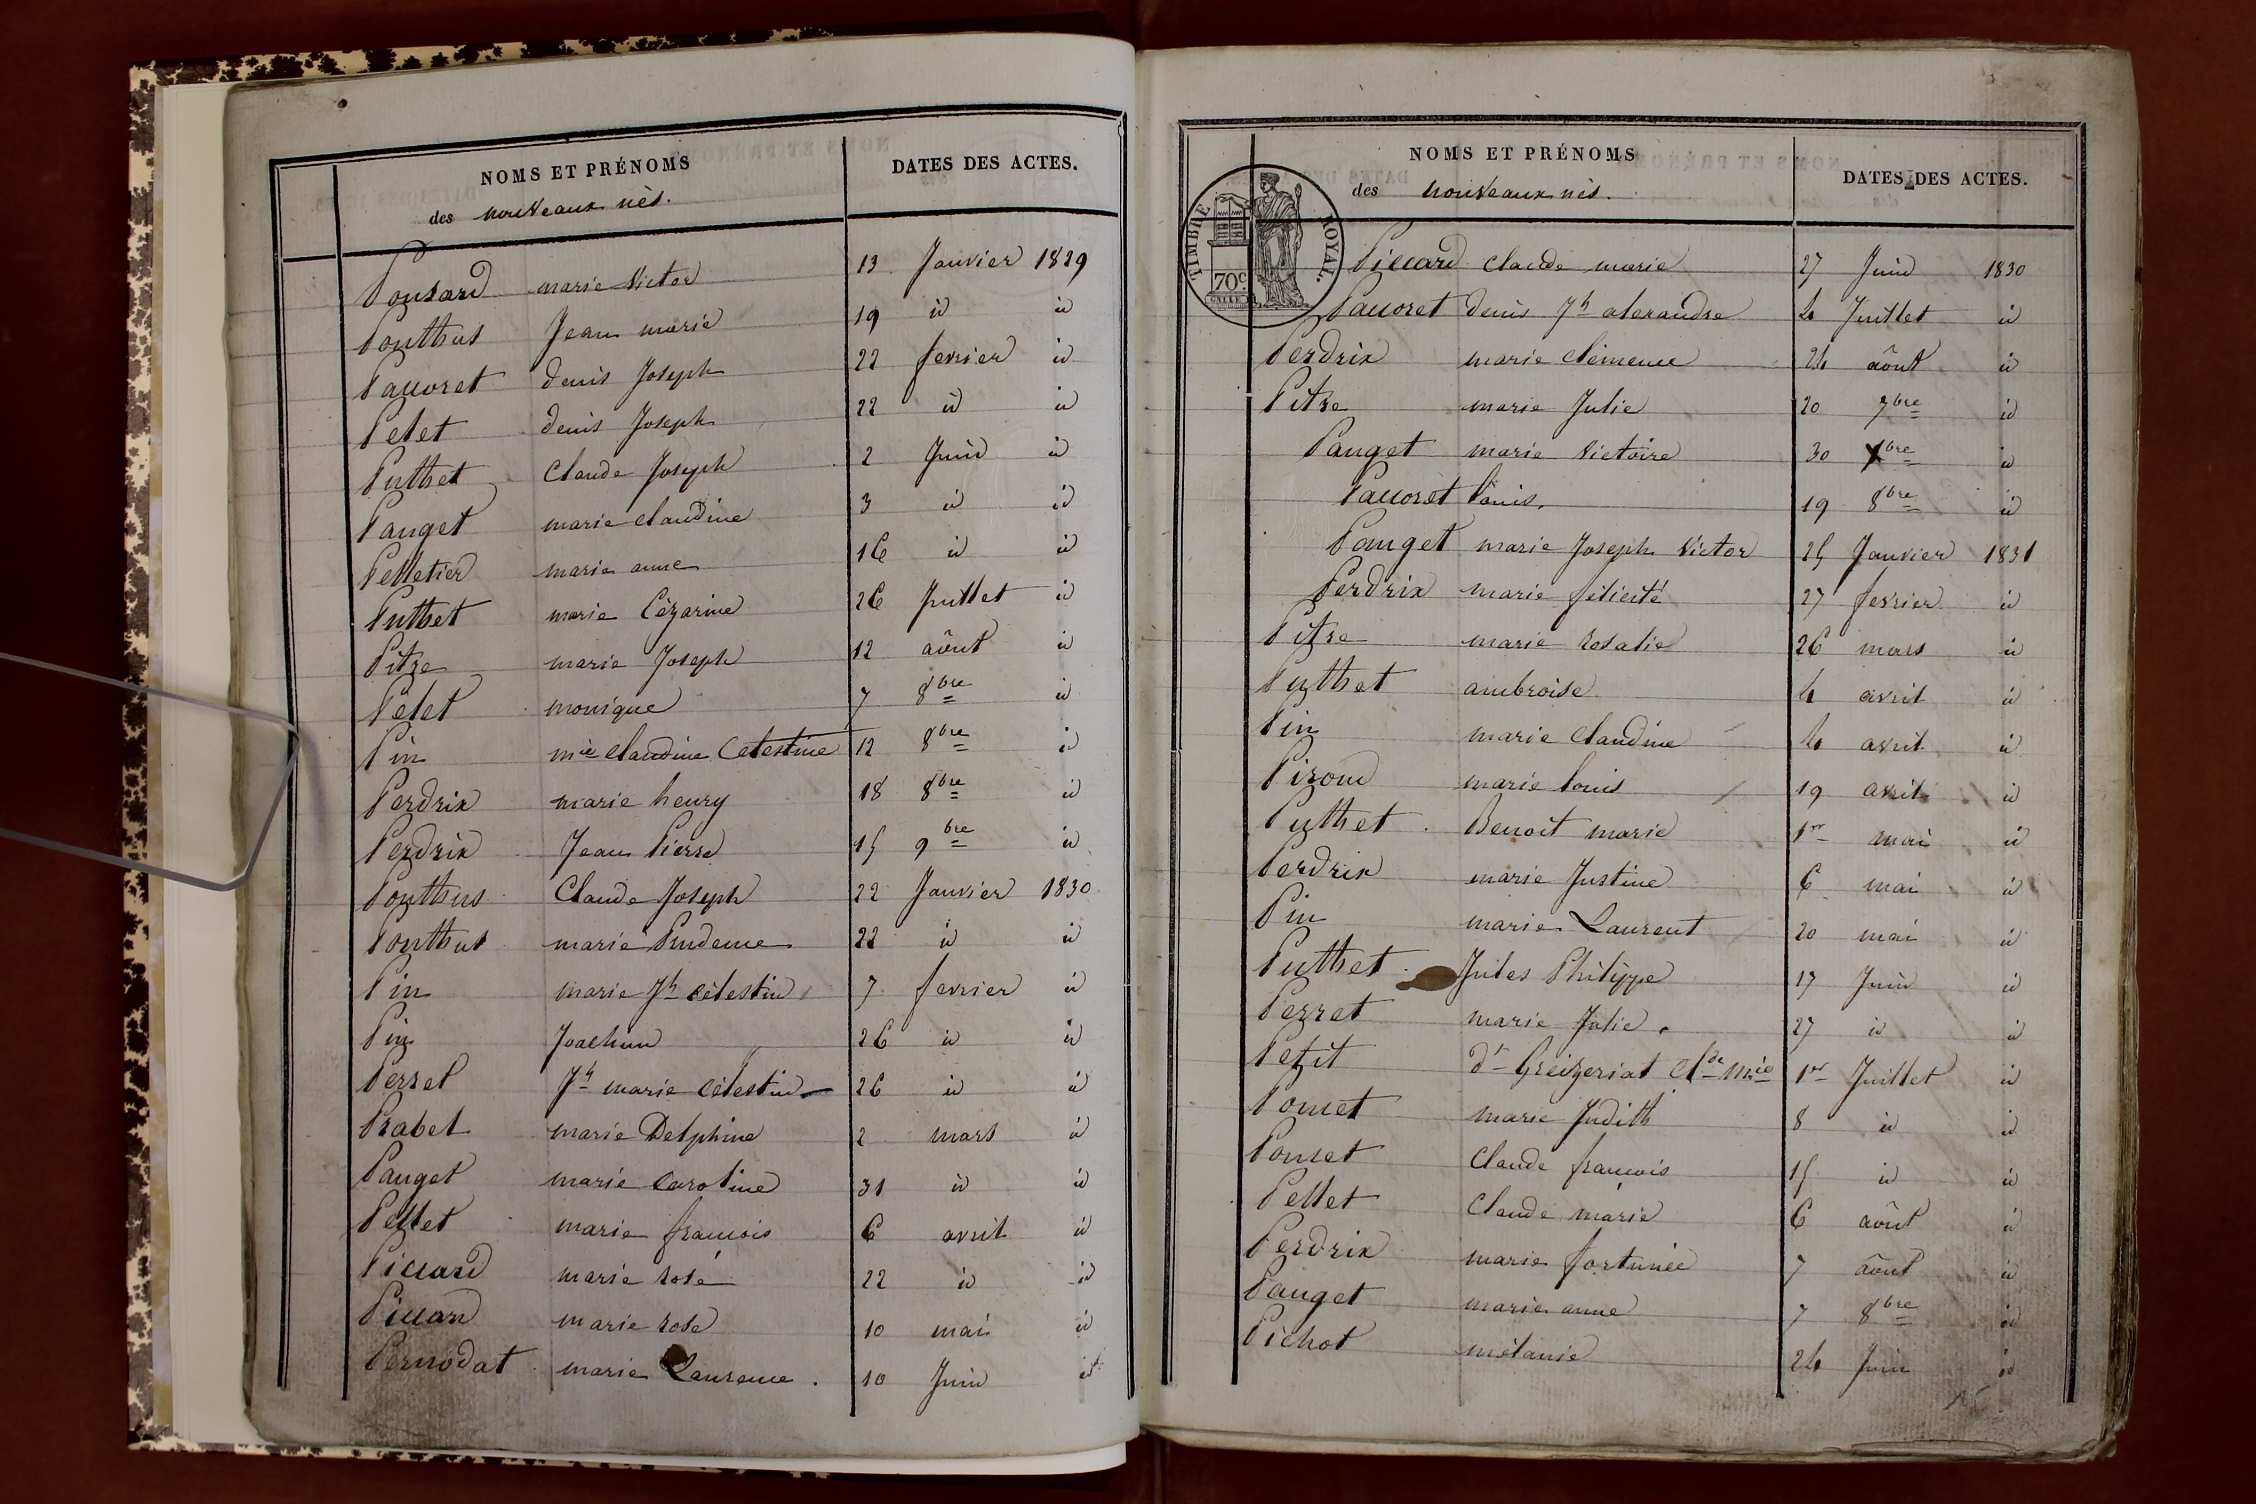 NOMS ET PRÉNOMS
DATES DES ACTES.
des nouveaux nés.
Ponsard marie Victor 13 Janvier 1829
Ponthus Jean marie 19 id id
Paccoret denis Joseph 22 fevrier id
Pelet denis Joseph 22 id id
Puthet Claude Joseph 2 Juin id
Pauget marie claudine 3 id id
Pelletier marie anne 16 id id
Puthet marie Cézarine 26 Juillet id
Pitre marie Joseph 12 août id
Pelet monique 7 8bre id
Pin mie Claudine Celestine 12 8bre id
Perdrix marie henry 18 8bre id
Perdrix Jean Pierre 15 9bre id
Ponthus Claude Joseph 22 Janvier 1830
Ponthus marie Prudence 22 id id
Pin marie Jh célestin 7 fevrier id
Pin Joachim 26 id id
Perret Jh marie célestin 26 id id
Prabel marie Delphine 2 mars id
Pauget marie caroline 31 id id
Pellet marie francois 6 avril id
Piccard marie rose 22 id id
Piccard marie rose 10 mai id
Pernodat marie Laurence. 10 Juin id
NOMS ET PRÉNOMS
DATES DES ACTES.
des nouveaux nés.
TIMBRE ROYAL.
70c
Piccard claude marie 27 Juin 1830
Paccoret denis Jh alexandre 4 Juillet id
Perdrix marie clémence 24 août id
Pitre marie Julie 20 7bre id
Pauget marie Victoire 30 7bre id
Paccoret Louis. 19 8bre id
Pauget marie Joseph Victor 25 Janvier 1831
Perdrix marie félicité 27 fevrier id
Pitre marie rosalie 26 mars id
Puthet ambroise 4 avril id
Pin marie Claudine 4 avril id
Piroud marie louis 19 avril id
Puthet Benoit marie 1er mai id
Perdrix marie Justine 6 mai id
Pin marie Laurent 20 mai id
Puthet Jules Philippe 17 Juin id
Perret marie Julie. 27 id id
Petit dt Greizeriat Cde Mie 1er Juillet id
Poncet marie Judith 8 id id
Poncet Claude francois 15 id id
Pellet Claude marie 6 août id
Perdrix marie fortunée 7 août id
Pauget marie anne 7 8bre id
Pichot mélanie 24 Juin id